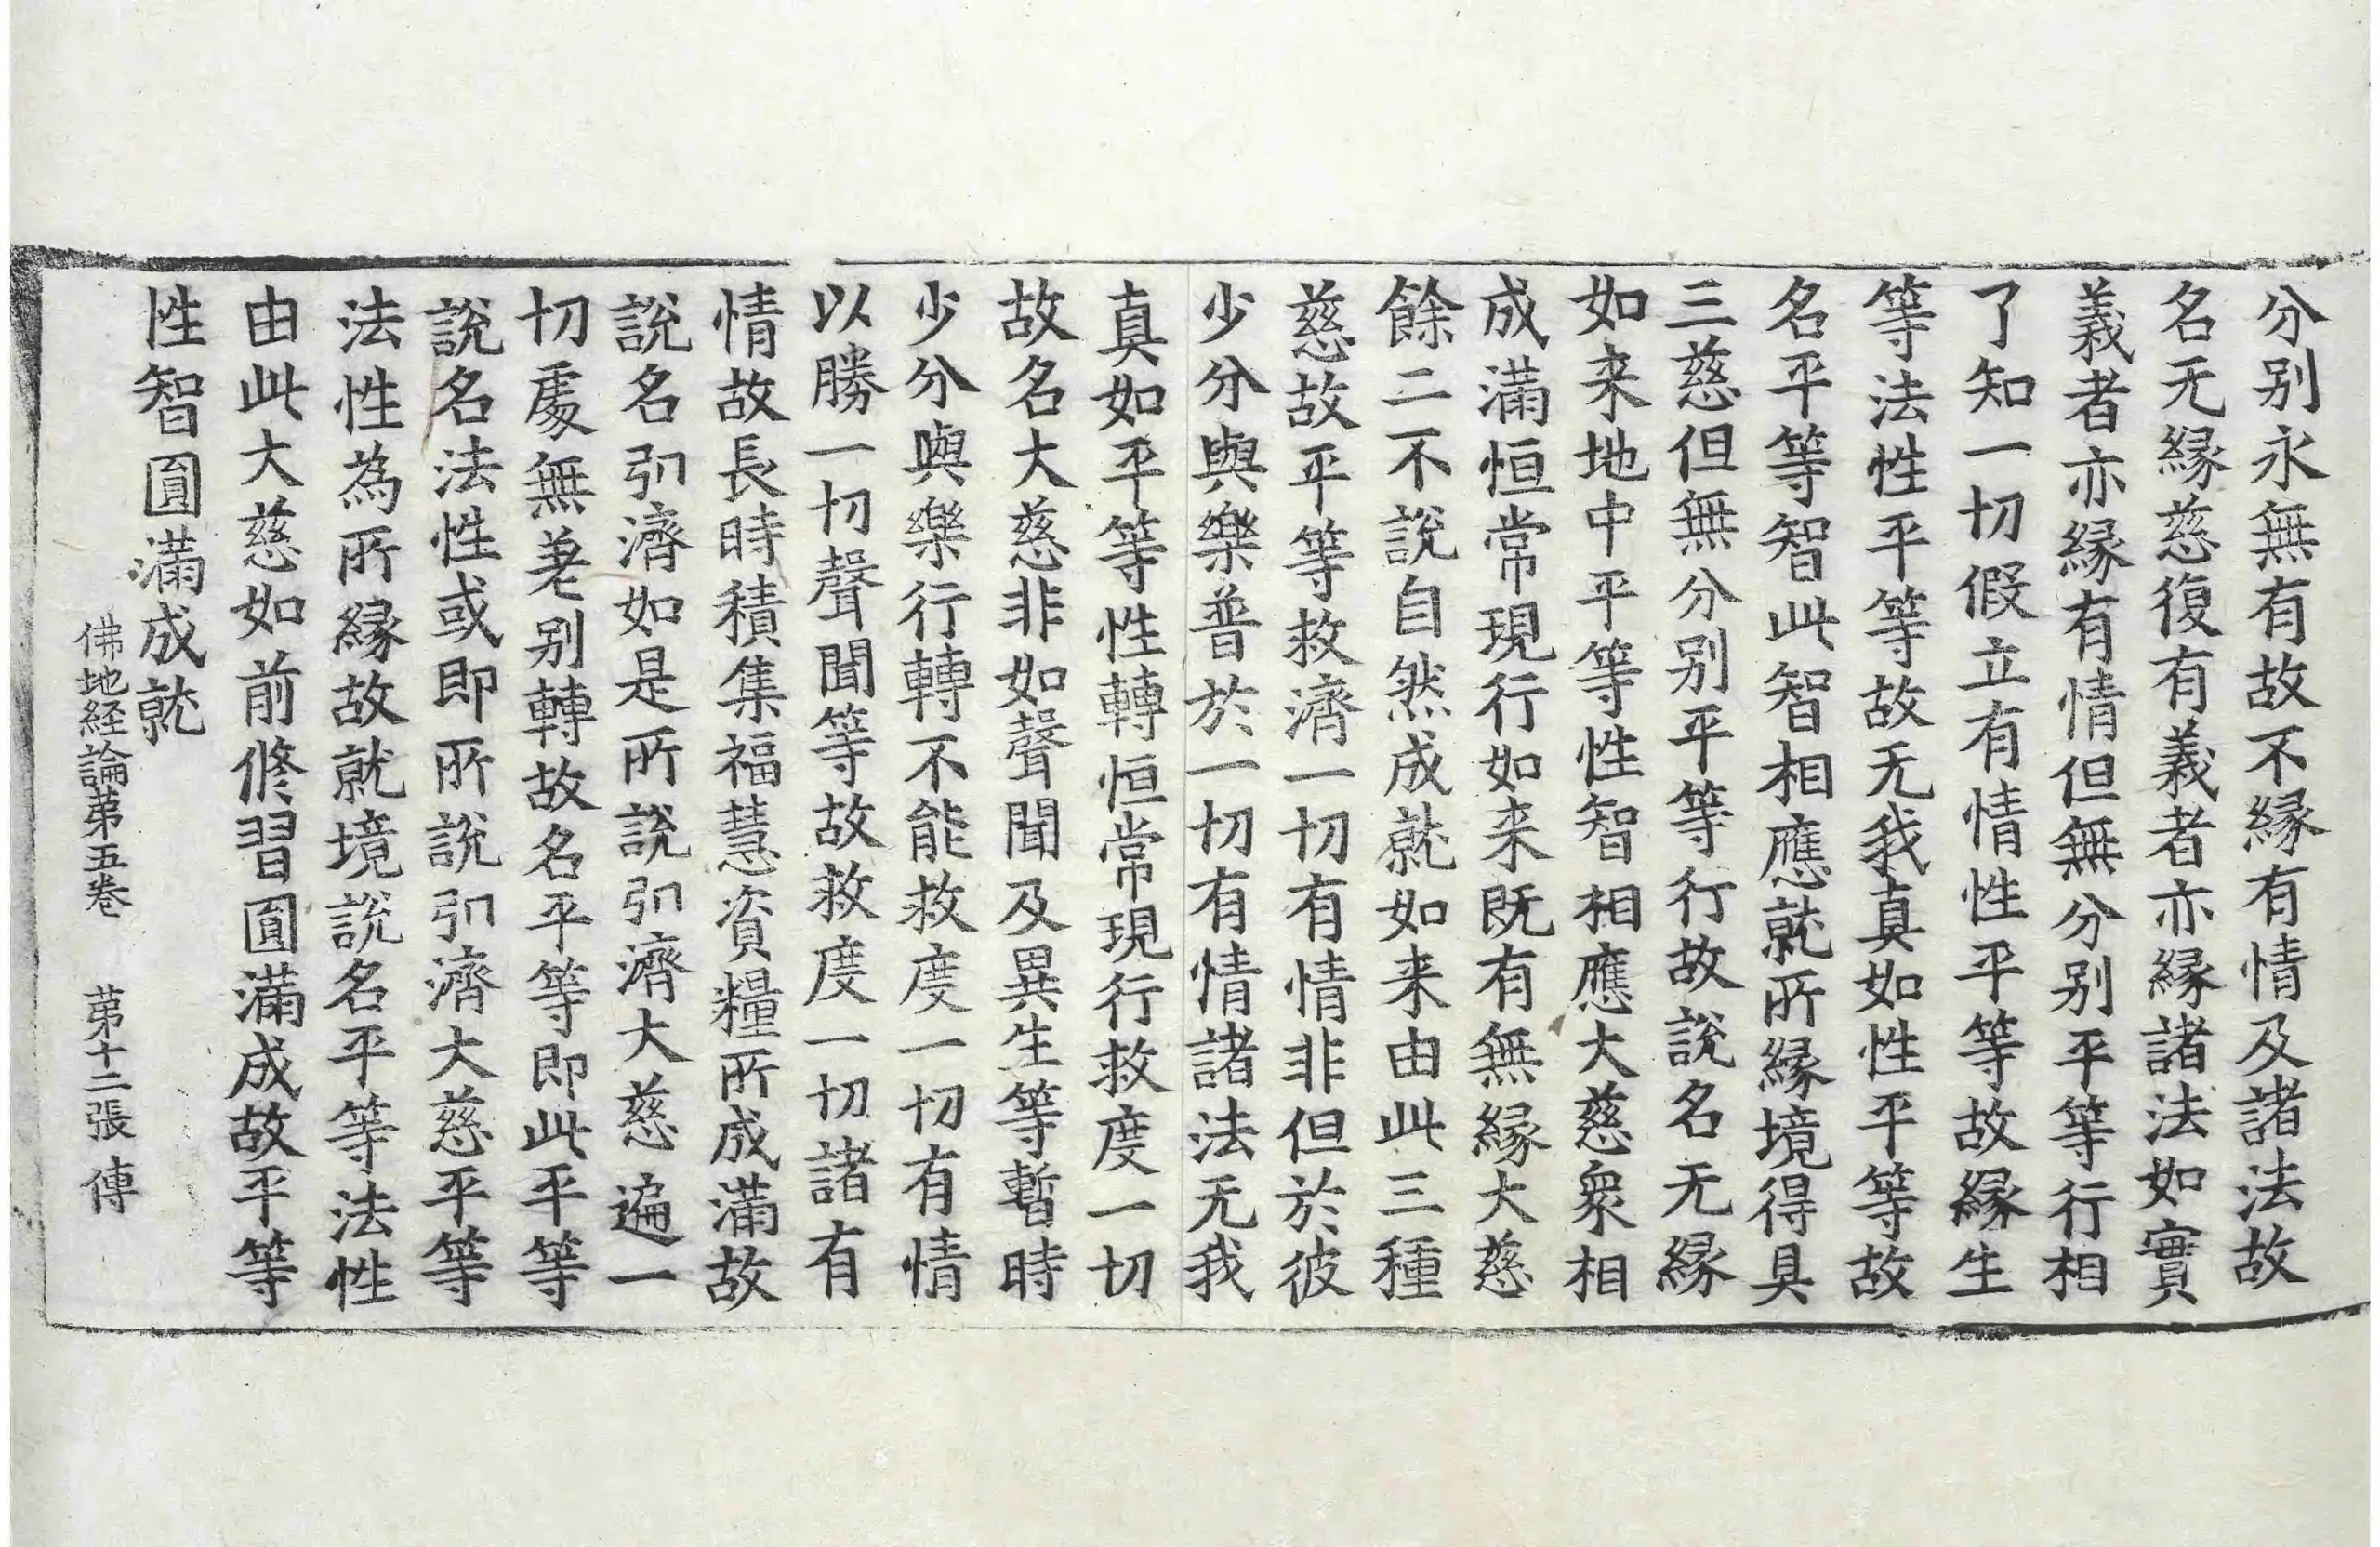 分别永無有故不縁有情及諸法故
名无縁慈復有義者亦縁諸法如實
義者亦縁有情但無分别平等行相
了知一切假立有情性平等故縁生
等法性平等故无我真如性平等故
名平等智此智相應就所縁境得具
三慈但無分别平等行故説名无縁
如来地中平等性智相應大慈衆相
成滿恒常現行如来既有無縁大慈
餘二不說自然成就如来由此三種
慈故平等救濟一切有情非但於彼
少分與樂普於一切有情諸法无我
真如平等性轉恒常現行救度一切
故名大慈非如聲聞及異生等暫時
少分與樂行轉不能救度一切有情
以勝一切聲聞等故救度一切諸有
情故長時積集福慧資糧所成滿故
說名引濟如是所說引濟大慈遍一
切處無差别轉故名平等即此平等
說名法性或即所說引濟大慈平等
法性為所縁故就境説名平等法性
由此大慈如前修習圓滿成故平等
性智圓滿成就
佛地経論第五卷 第十二張 傳